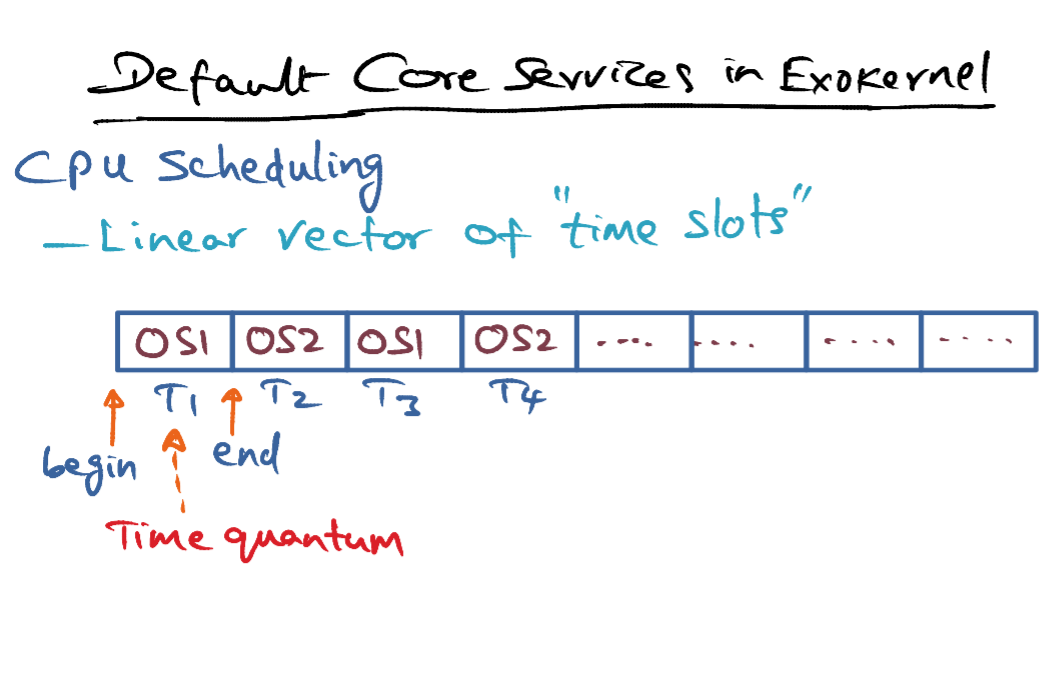 Default Core Services in Exokernel
CPU Scheduling
- Linear vector of "time slots"
OS1 OS2 OS1 OS2 .... .... .... ....
T1 T2 T3 T4
begin end
Time quantum